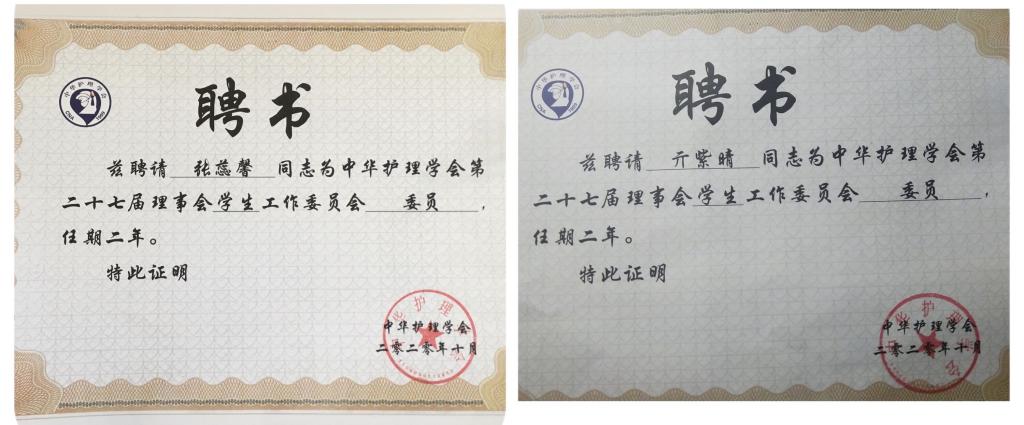 中华护理学会
CNA 1909
聘书
兹聘请 张蕊馨 同志为中华护理学会第
二十七届理事会学生工作委员会 委员，
任期二年。
特此证明
中华护理学会
二零二零年十月
中华护理学会
CNA 1909
聘书
兹聘请 亓紫晴 同志为中华护理学会第
二十七届理事会学生工作委员会 委员，
任期二年。
特此证明
中华护理学会
二零二零年十月